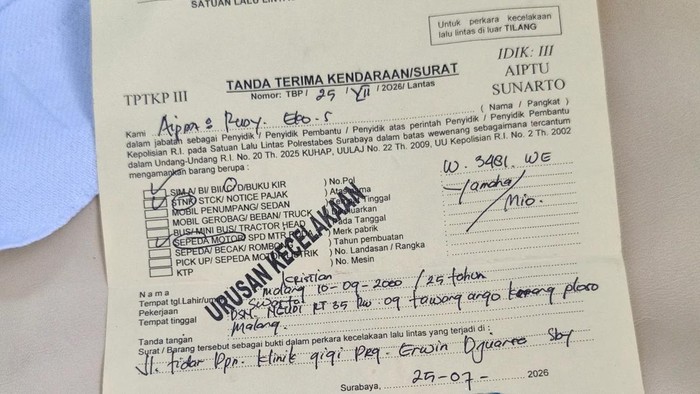 SATUAN LALU LINT
Untuk perkara kecelakaan
lalu lintas di luar TILANG
TANDA TERIMA KENDARAAN/SURAT
Nomor: TBP / 25 / VII /2026/ Lantas
TPTKP III
IDIK: III
AIPTU
SUNARTO
Kami Aipda Rudy. Eko. S ( Nama / Pangkat )
dalam jabatan sebagai Penyidik / Penyidik Pembantu / Penyidik atas perintah Penyidik / Penyidik Pembantu
Kepolisian R.I. pada Satuan Lalu Lintas Polrestabes Surabaya dalam batas wewenang sebagaimana tercantum
dalam Undang-Undang R.I. No. 20 Th. 2025 KUHAP, UULAJ No. 22 Th. 2009, UU Kepolisian R.I. No. 2 Th. 2002
mengamankan barang berupa :
SIM A/ BI/ BII/ C/ D/BUKU KIR ) No.Pol W. 3481. WE
STNK/ STCK/ NOTICE PAJAK
MOBIL PENUMPANG/ SEDAN Yamaha/
MOBIL GEROBAG/ BEBAN/ TRUCK Mio.
BUS/ MINI BUS/ TRACTOR HEAD
SEPEDA MOTOR/ SPD MTR ) Merk pabrik
SEPEDA/ BECAK/ ROMBONG ) Tahun pembuatan
PICK UP/ SEPEDA MOTOR LISTRIK ) No. Landasan / Rangka
KTP ) No. Mesin
URUSAN KECELAKAAN
Nama Cristian
Tempat tgl.Lahir/umur Malang 10-09-2000 / 25 tahun
Pekerjaan Swasta
Tempat tinggal DSN. NGUDI RT 35 RW 09
Malang.
Tanda tangan
Surat / Barang tersebut sebagai bukti dalam perkara kecelakaan lalu lintas yang terjadi di :
Jl. Tidar Dpn. Klinik gigi Drg. Erwin Sby
Surabaya, 25-07- 2026